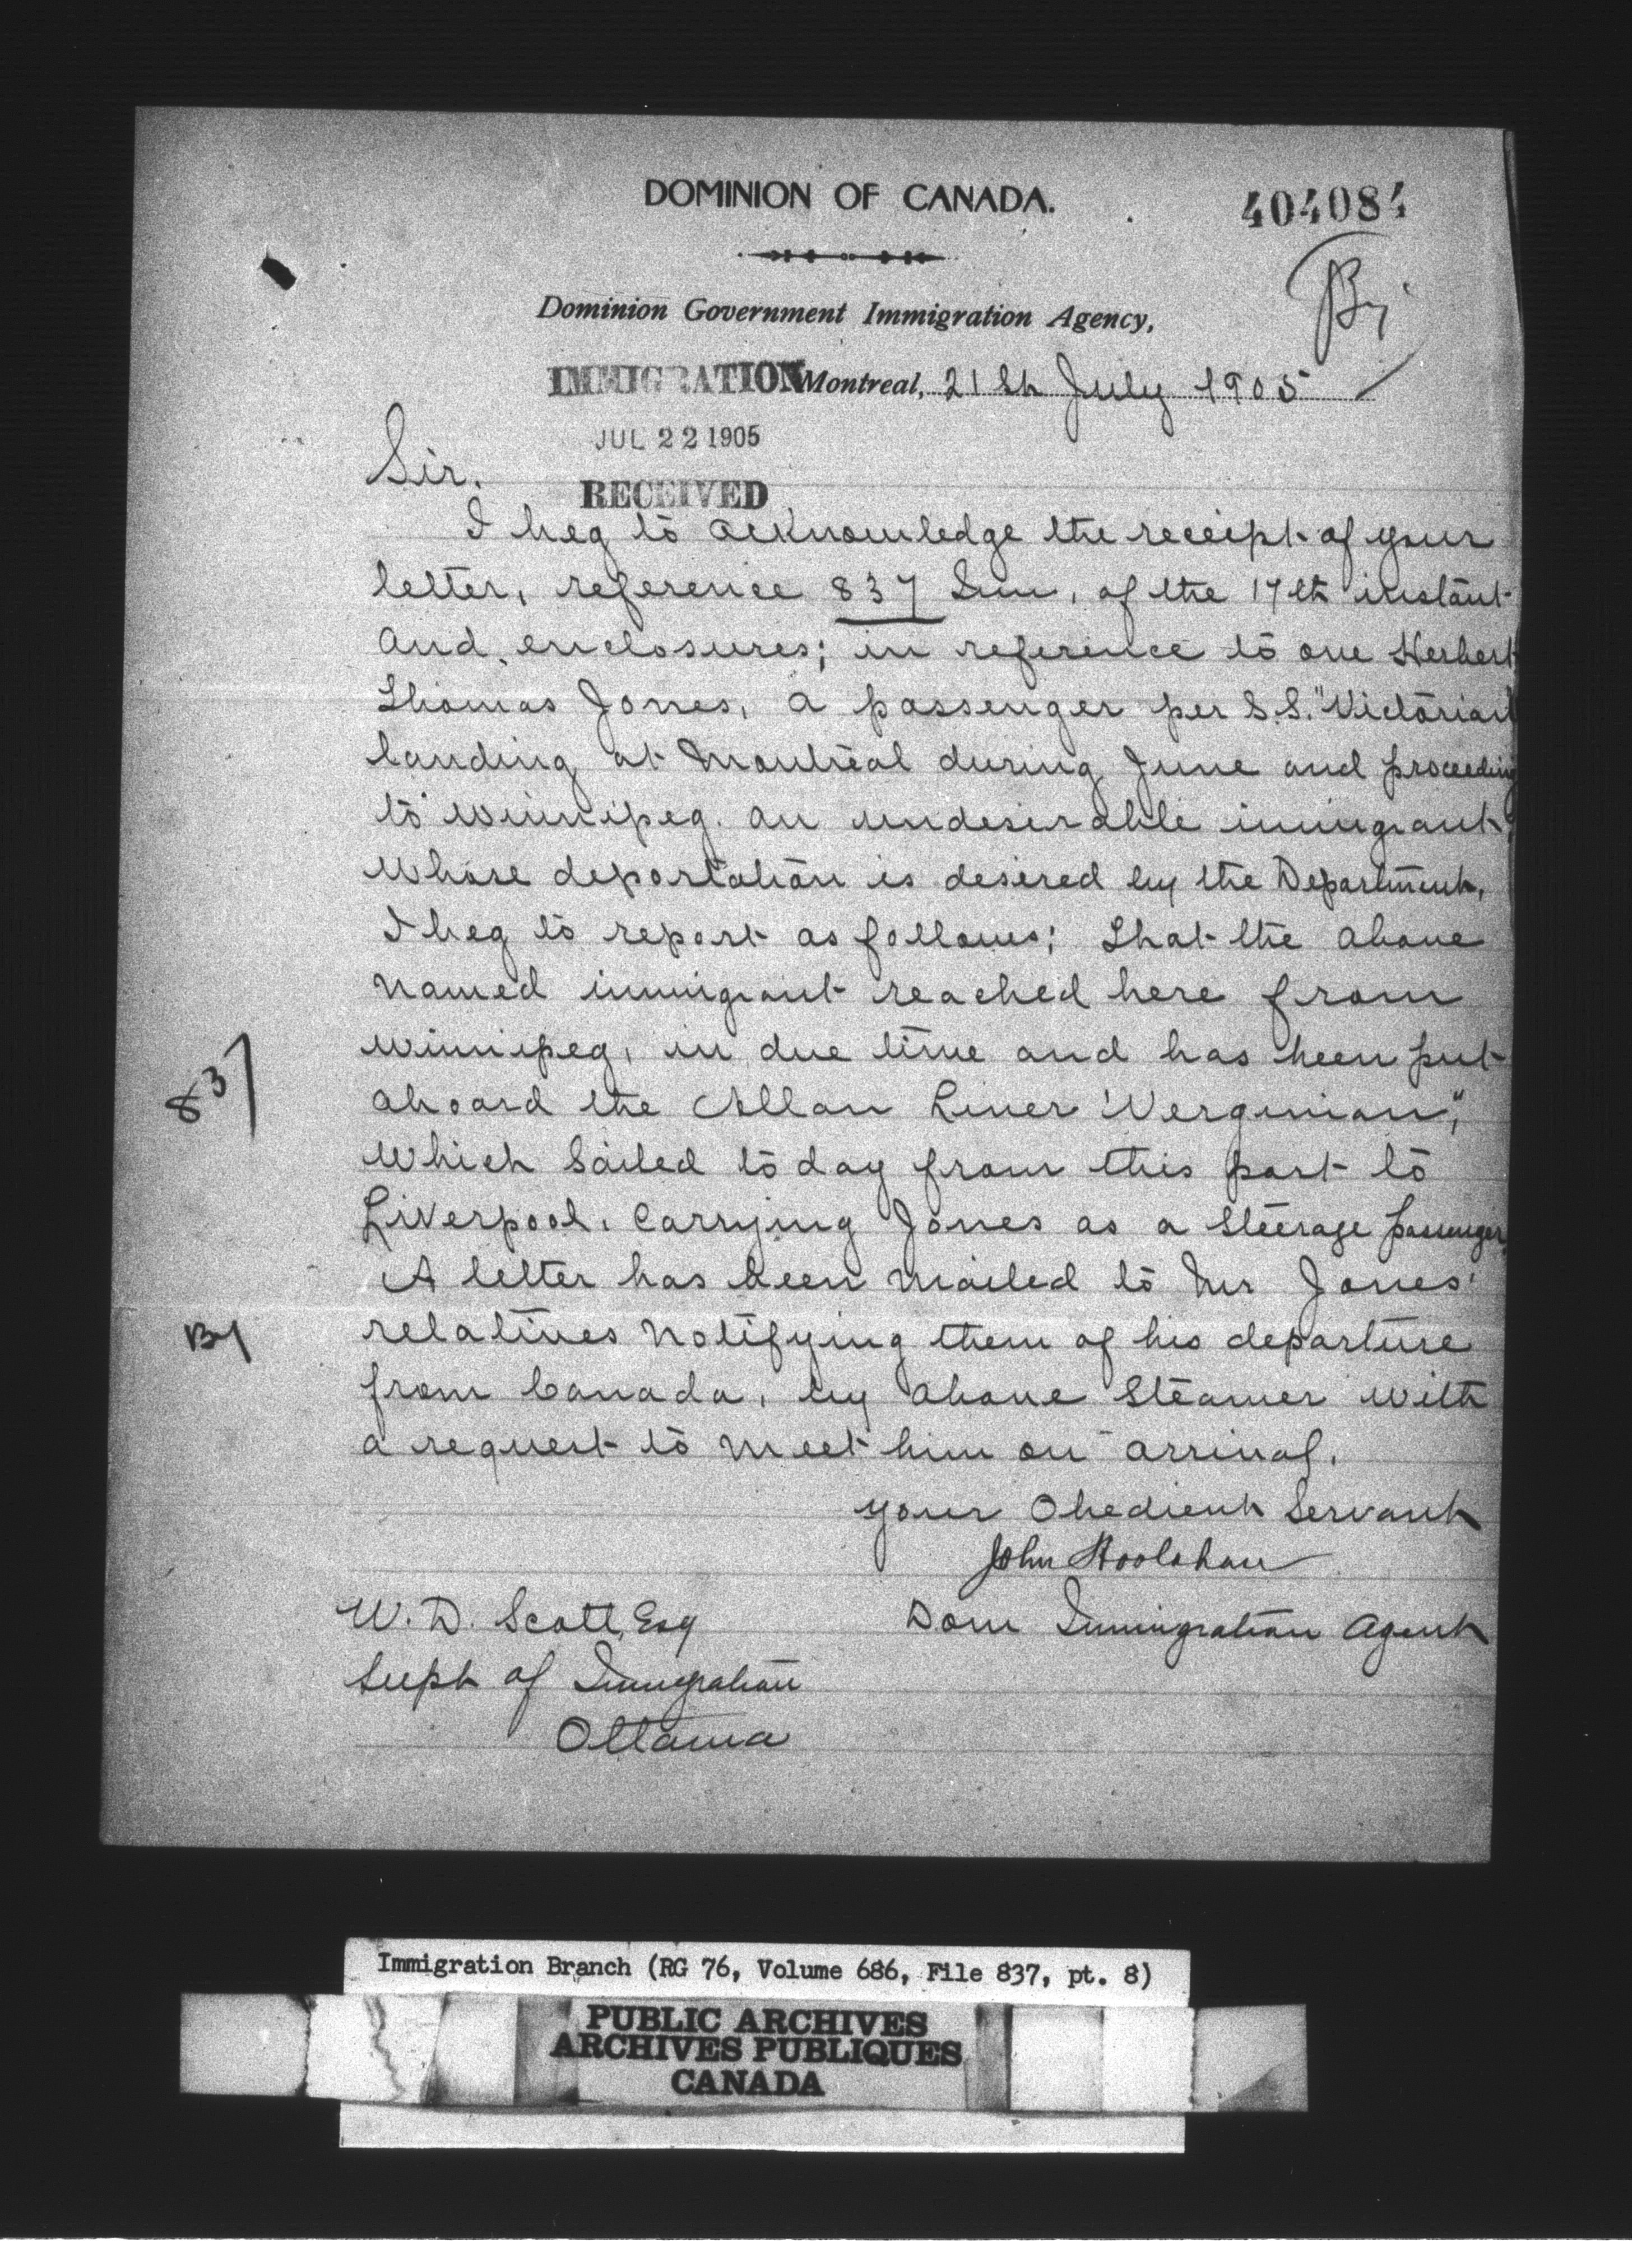 DOMINION OF CANADA.
404084
By
Dominion Government Immigration Agency,
IMMIGRATION Montreal, 21th July 1905
JUL 22 1905
Sir,
RECEIVED
I beg to acknowledge the receipt of your
letter, reference 837 Imm, of the 17th instant
and enclosures; in reference to one Herbert
Thomas Jones, a passenger per S.S. "Victorian"
landing at Montreal during June and proceeding
to Winnipeg. an undesirable immigrant,
whose deportation is desired by the Department,
I beg to report as follows; that the above
named immigrant reached here from
Winnipeg, in due time and has been put
837
aboard the Allan Liner "Verginian",
which sailed to day from this port to
Liverpool, carrying Jones as a steerage passenger.
A letter has been mailed to Mr Jones'
By
relatives notifying them of his departure
from Canada, by above steamer with
a request to meet him on arrival.
your Obedient Servant
John Hoolahan
W. D. Scott, Esq
Dom Immigration Agent
Supt of Immigration
Ottawa
Immigration Branch (RG 76, Volume 686, File 837, pt. 8)
PUBLIC ARCHIVES
ARCHIVES PUBLIQUES
CANADA